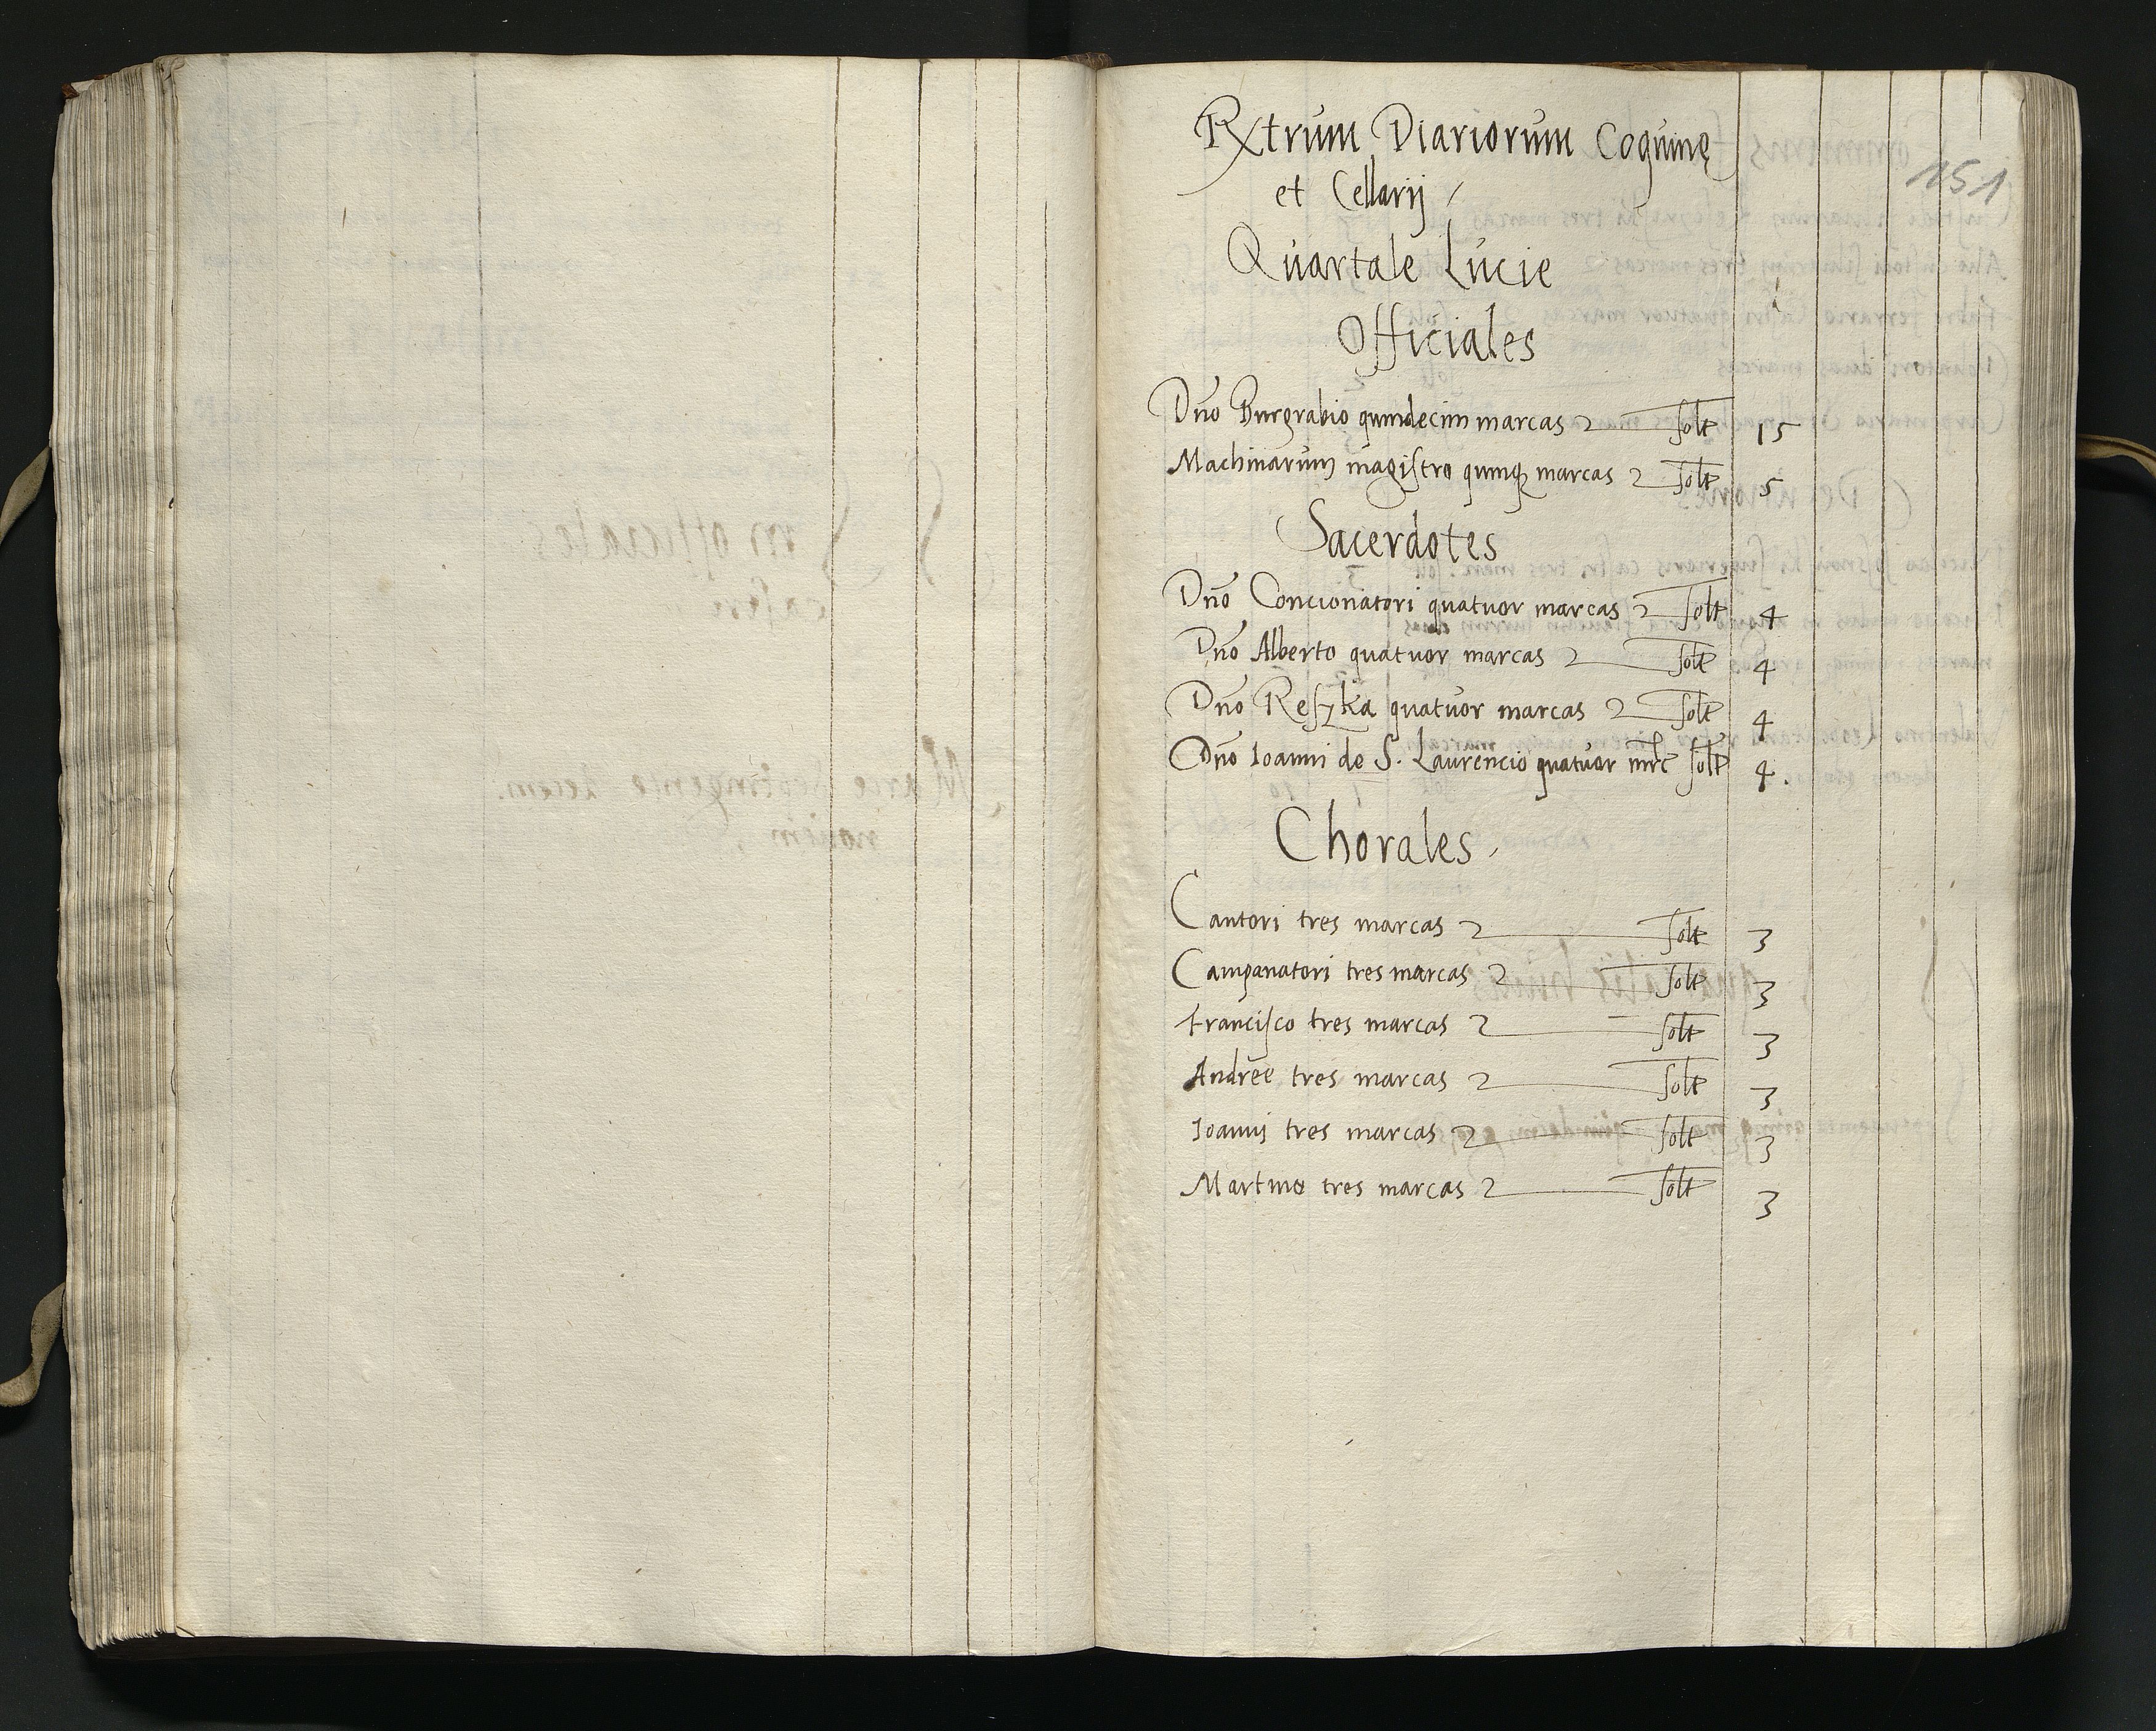 Rxtrum Diariorum Coquinę
et Cellarij
151
Quartale Lucie
Officiales
Dno Burgrabio quindecim marcas solt 15
Machinarum magistro quinq marcas solt 5
Sacerdotes
Dno Concionatori quatuor marcas solt 4
Dno Alberto quatuor marcas solt 4
Dno Reszka quatuor marcas solt 4
Dno Ioanni de S. Laurencio quatuor mrc solt 4.
Chorales
Cantori tres marcas solt 3
Campanatori tres marcas solt 3
Francisco tres marcas solt 3
Andree tres marcas solt 3
Ioanni tres marcas solt 3
Martino tres marcas solt 3